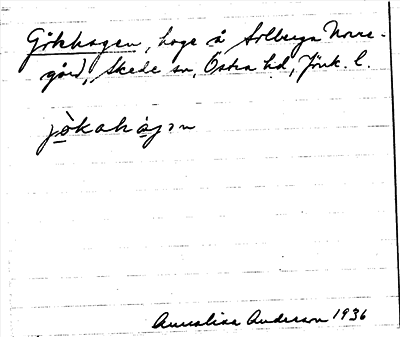 Gökhagen, hage å Solberga Norre-
gård, Skede sn, Östra hd, Jönk. l.
jökahagən
Annalisa Anderson 1936